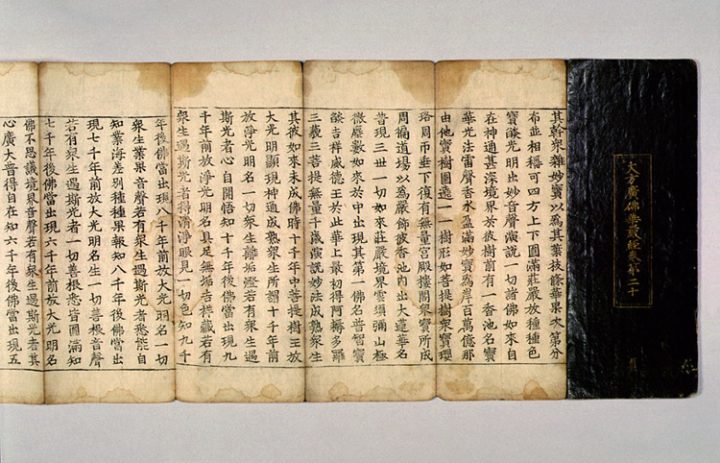 大方廣佛華嚴經卷第二十
其幹衆雜妙寶以爲其葉枝條華果次第分
布並相稱可四方上下圓滿莊嚴放種種色
寶𦦨光明出妙音聲演說一切諸佛如來自
在神通甚深境界於彼樹前有一香池名寶
華光法雷聲香水盈滿妙寶爲岸百萬億那
由他寶樹圍遶一一樹形如菩提樹衆寶瓔
珞周帀垂下復有無量宮殿樓閣衆寶所成
周徧道場以爲嚴飾彼香池内出大蓮華名
普現三世一切如來莊嚴境界雲須彌山極
微塵數如來於中出現其第一佛名普智寶
𦦨吉祥威德王於此華上最初得阿耨多羅
三藐三菩提無量千歲演說妙法成熟衆生
其彼如來未成佛時十千年中菩提樹王放
大光明顯現神通成熟衆生所謂十千年前
放淨光明名一切衆生離垢燈若有衆生遇
斯光者心自開悟知十千年後佛當出現九
千年前放淨光明名具足無垢吉祥藏若有
衆生遇斯光者得清淨眼見一切色知九千
年後佛當出現八千年前放大光明名一切
衆生業果音聲若有衆生遇斯光者悉能自
知業海差別種種果報知八千年後佛當出
現七千年前放大光明名生一切善根音聲
若有衆生遇斯光者一切善根悉皆圓滿知
七千年後佛當出現六千年前放大光明名
佛不思議境界音聲若有衆生遇斯光者其
心廣大普得自在知六千年後佛當出現五